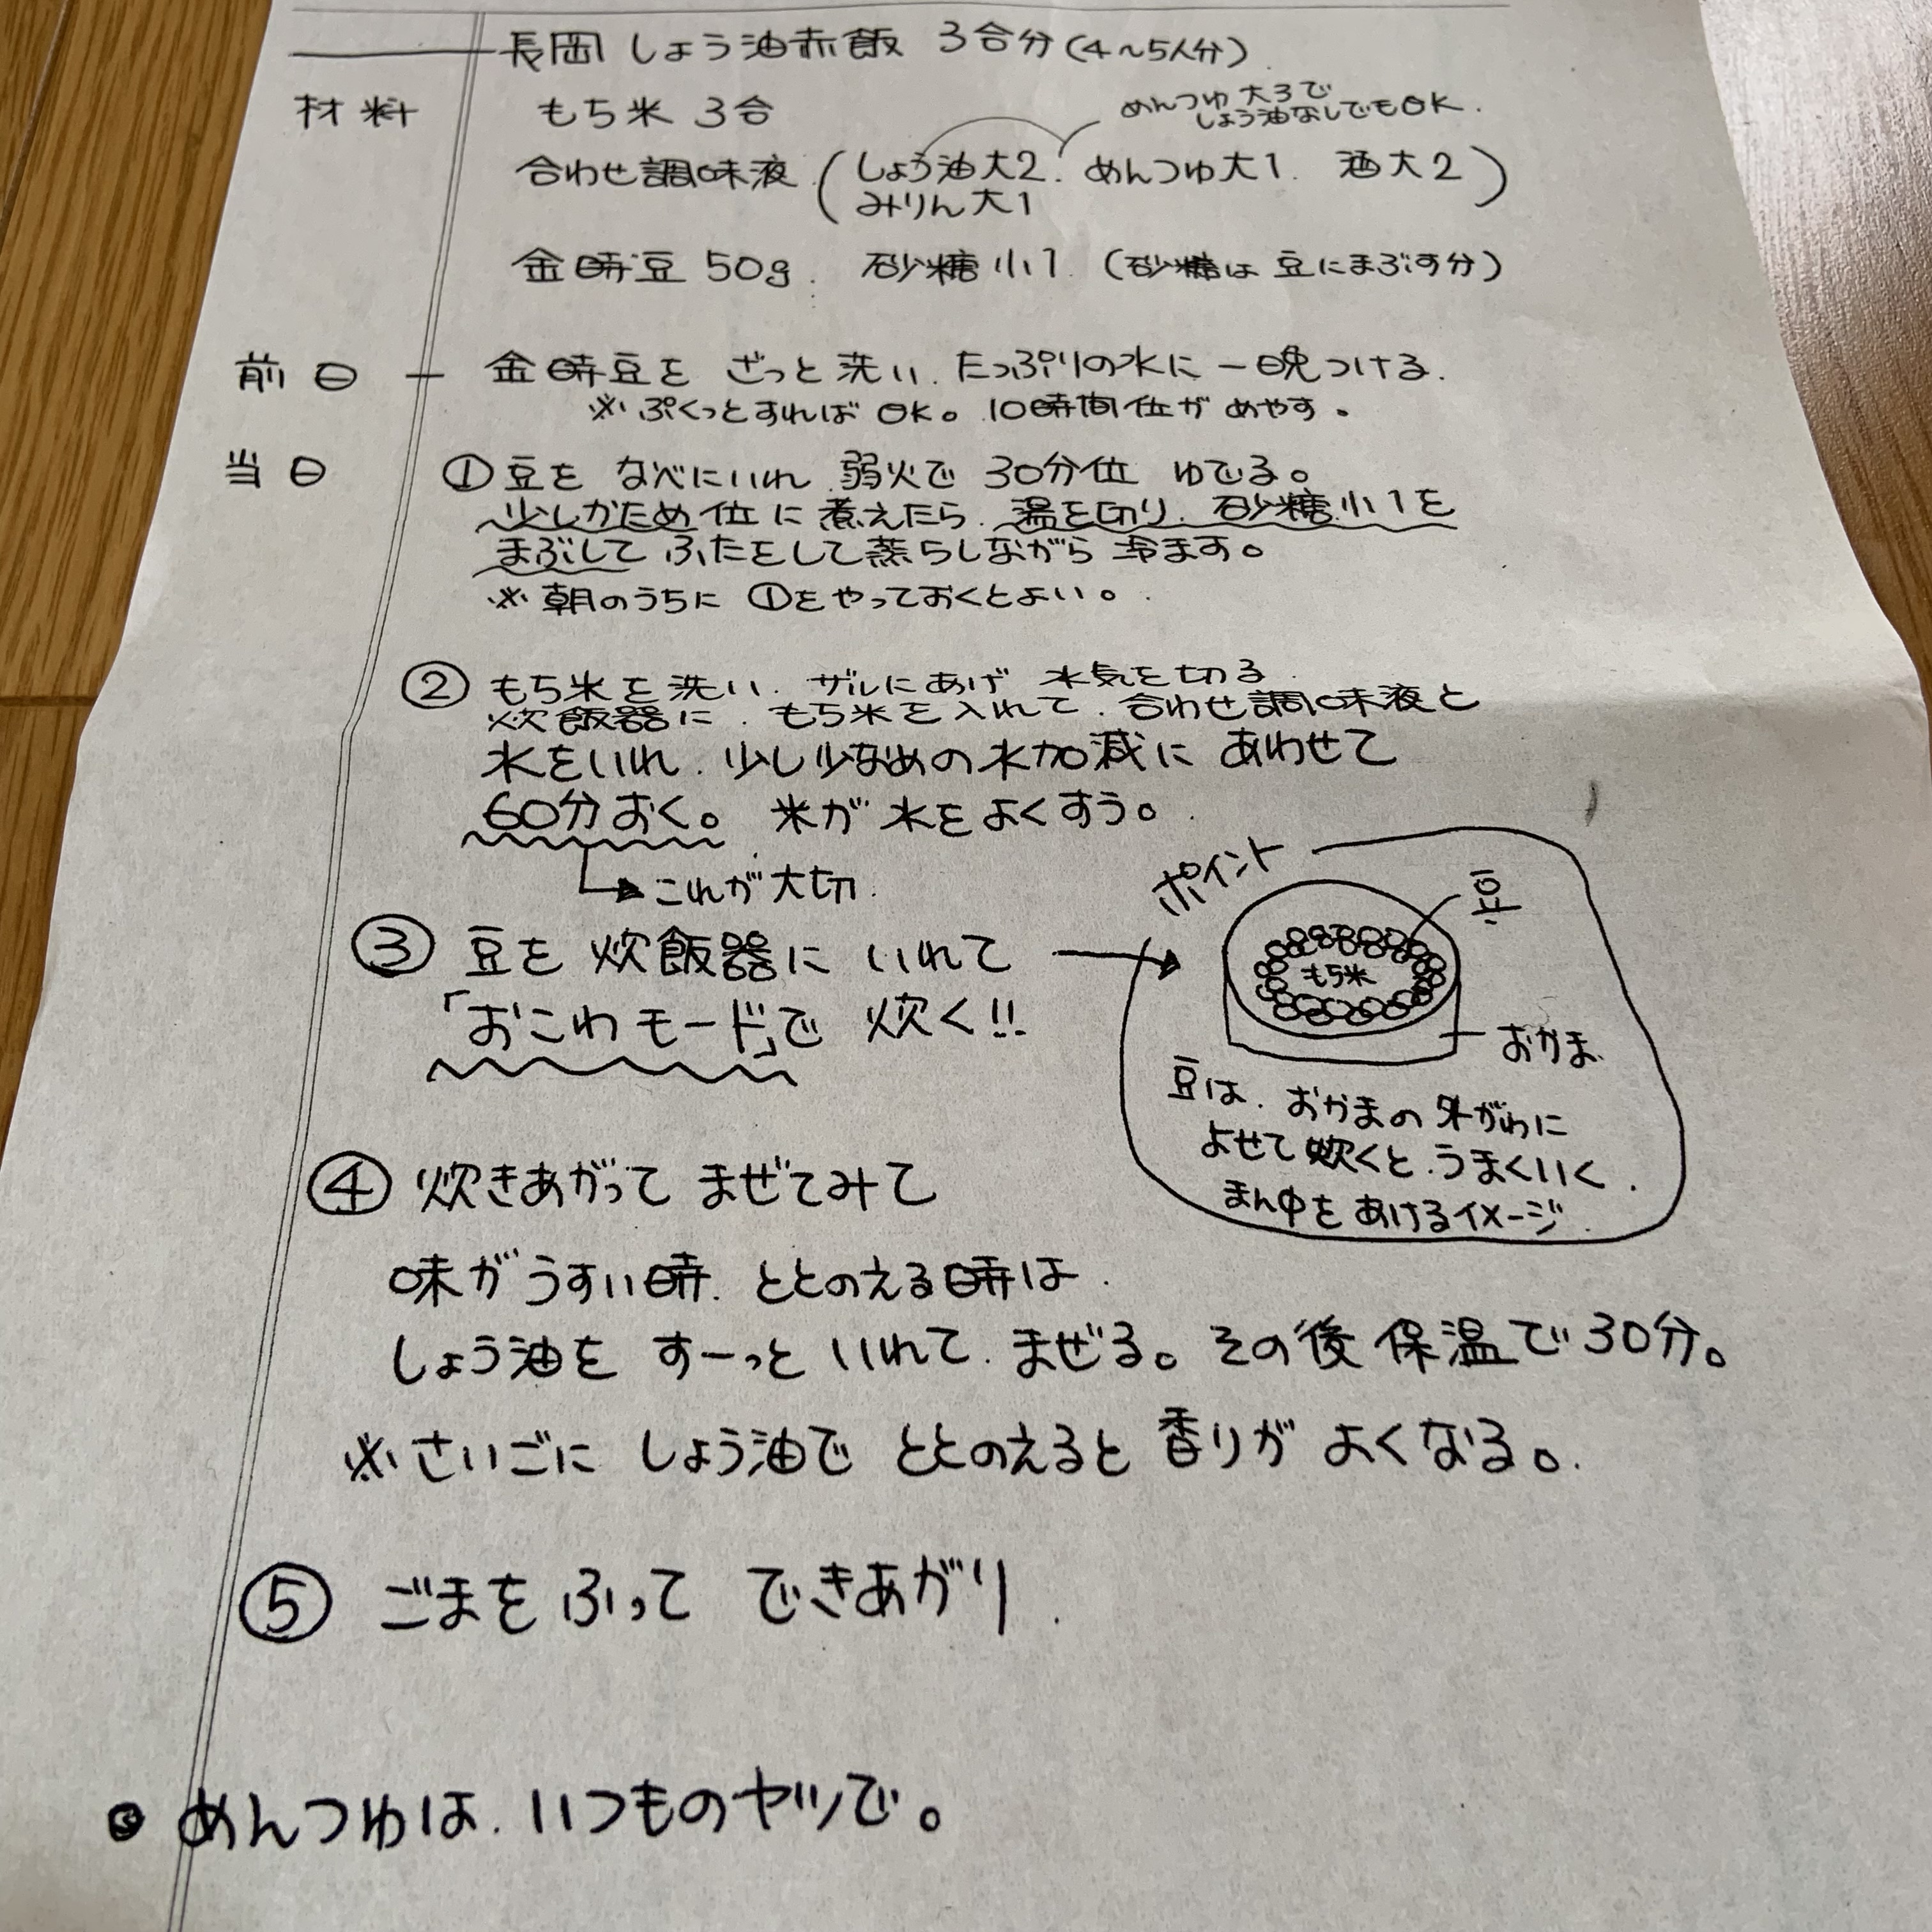 長岡 しょう油赤飯 3合分(4〜5人分)
材料 もち米 3合
めんつゆ 大3で
しょう油なしでもOK.
合わせ調味液 (しょう油大2. めんつゆ大1. 酒大2
みりん大1)
金時豆 50g. 砂糖小1 (砂糖は 豆にまぶす分)
前日 ー 金時豆を ざっと洗い. たっぷりの水に一晩つける.
※ ぷくっとすれば OK。10時間位が めやす。
当日 ①豆を なべにいれ 弱火で 30分位 ゆでる。
少しかため位に煮えたら. 湯を切り. 砂糖小1を
まぶして ふたをして蒸らしながら 冷ます。
※ 朝のうちに ①をやっておくとよい。
② もち米を洗い. ザルにあげ 水気を切る.
炊飯器に. もち米を入れて. 合わせ調味液と
水をいれ. 少し少なめの水加減に あわせて
60分おく。 米が水をよくすう。
→これが大切.
③ 豆を 炊飯器に いれて
「おこわモード」で 炊く!!
ポイント
豆
もち米
おかま.
豆は. おかまの 外がわに
よせて 炊くと. うまくいく.
まん中を あけるイメージ.
④ 炊きあがって まぜてみて
味がうすい時. ととのえる時は.
しょう油を すーっと いれて. まぜる。その後 保温で30分。
※ さいごに しょう油で ととのえると 香りが よくなる。
⑤ ごまを ふって できあがり.
● めんつゆは. いつものヤツで。